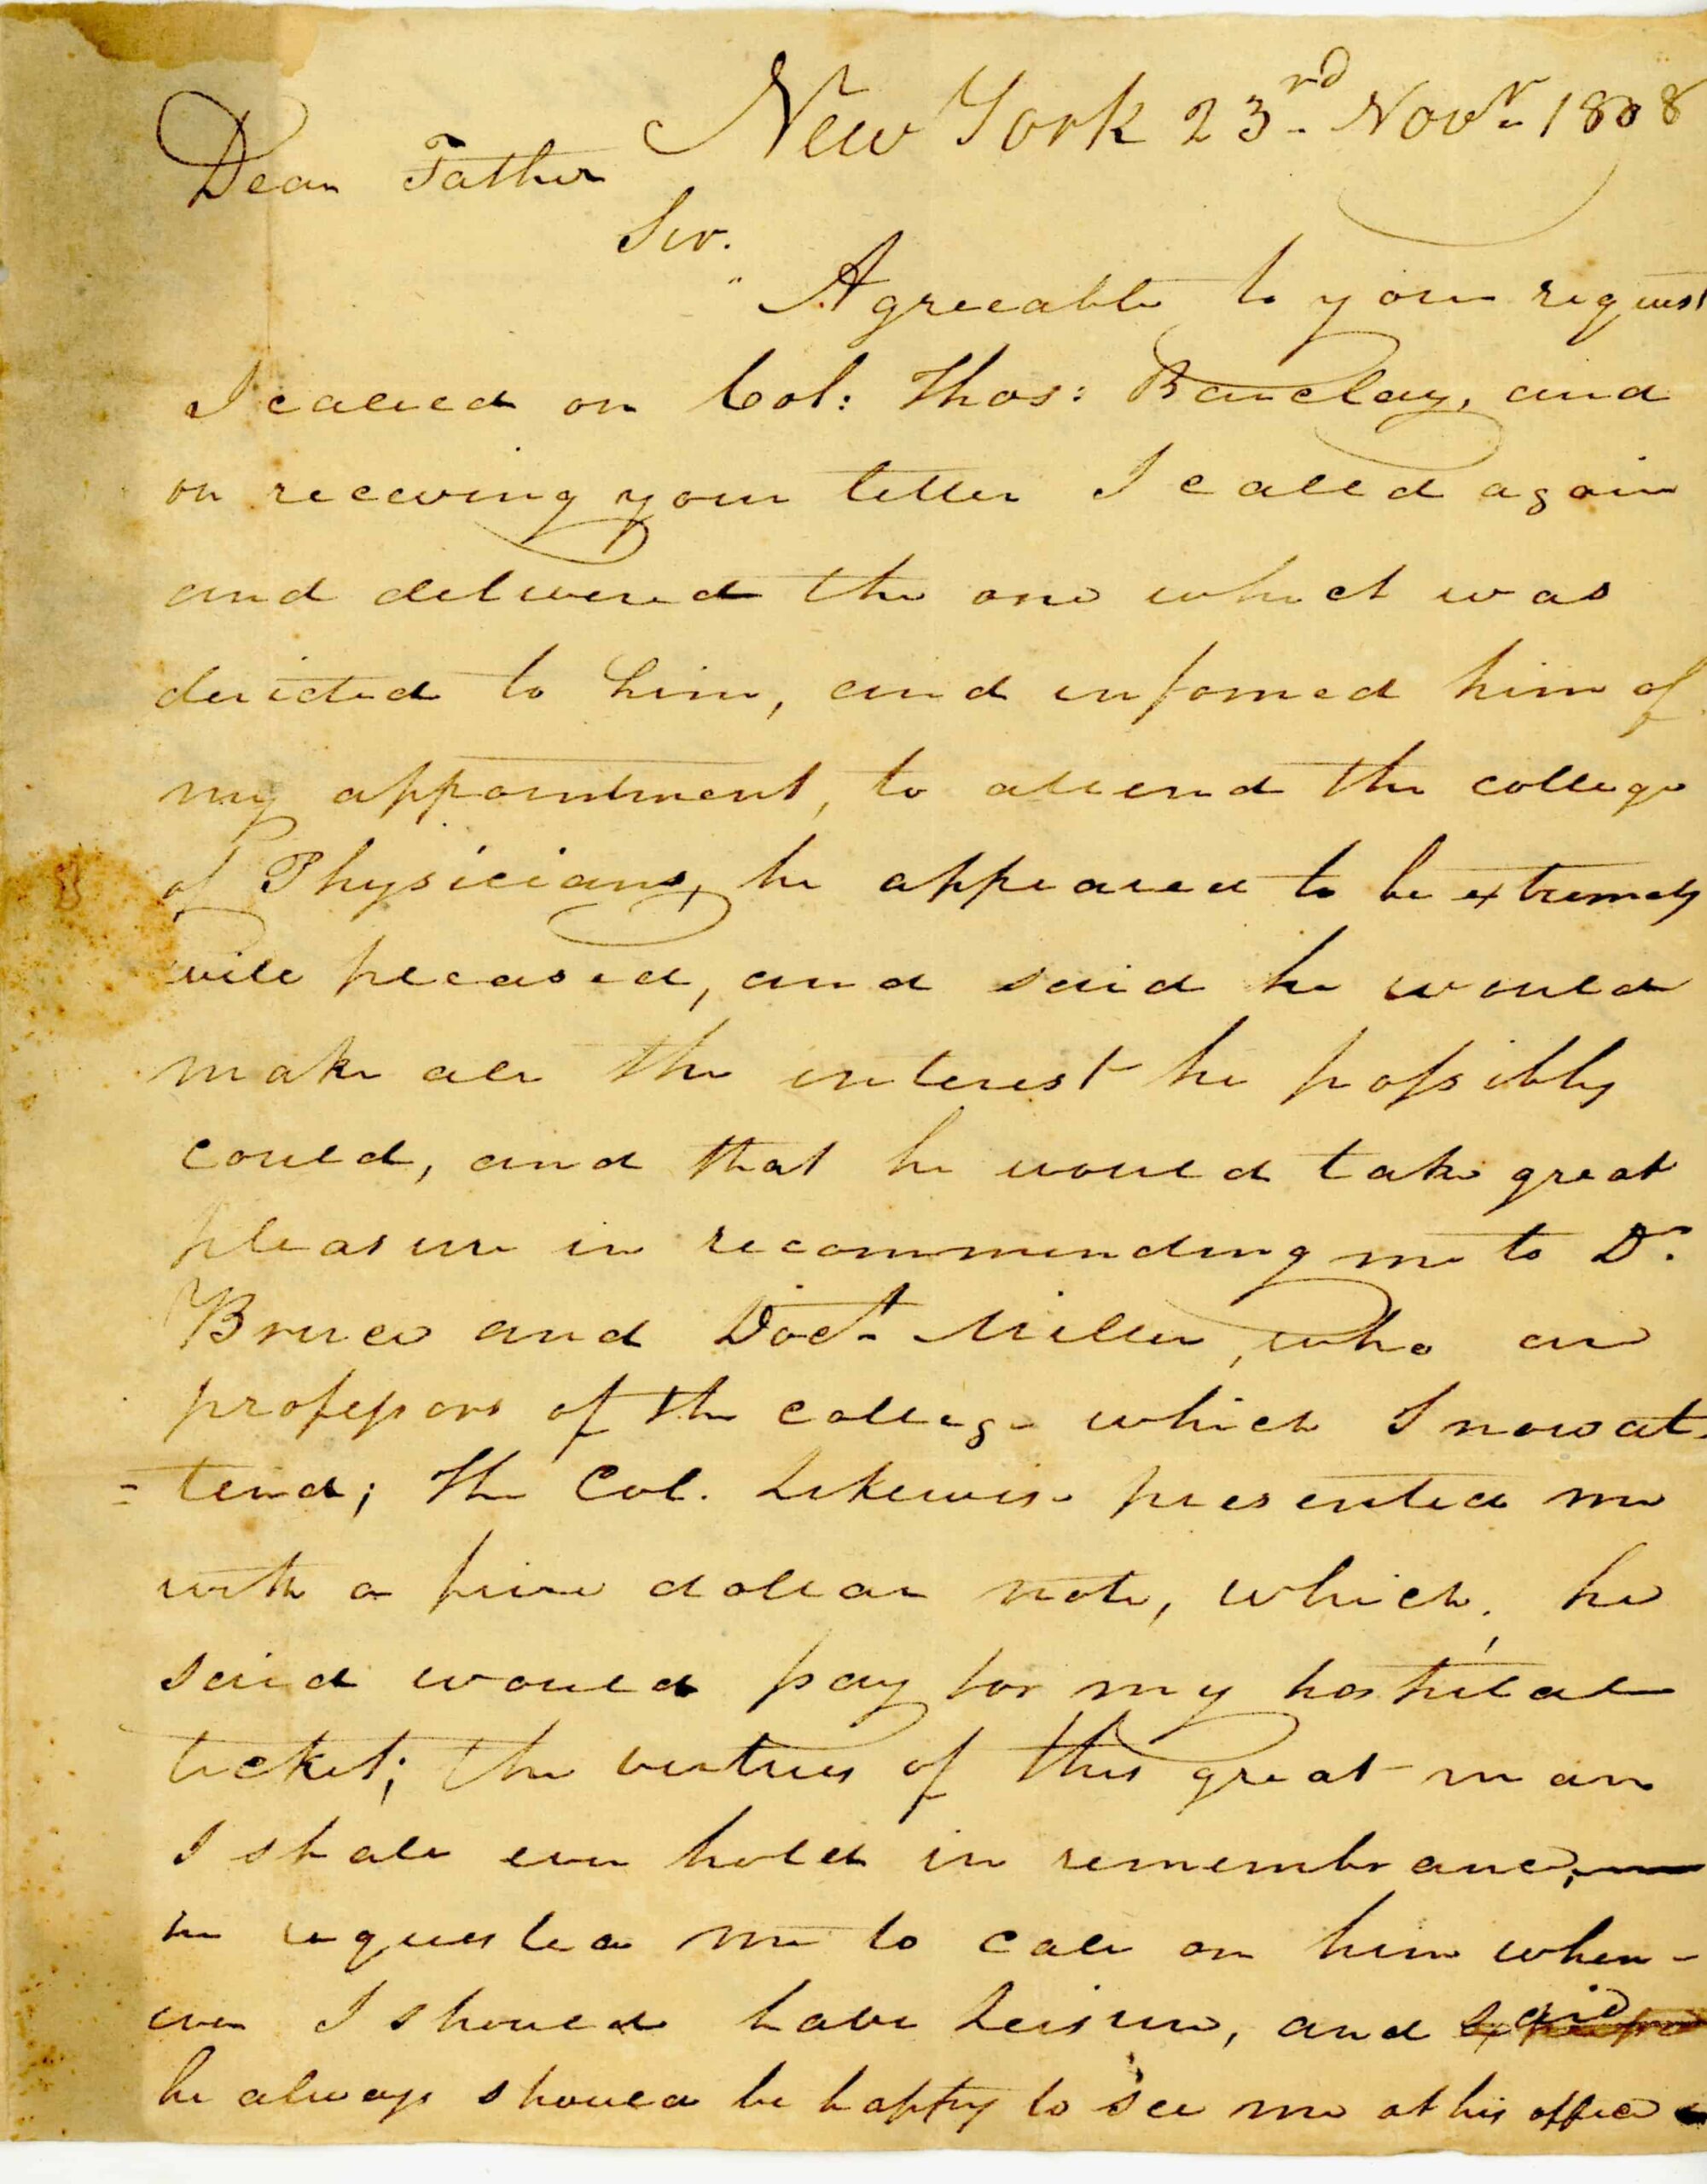 New York 23rd Novr 1808
Dear Father
Sir.
Agreeable to your request
I called on Col: Thos: Barclay, and
on receiving your letter I called again
and delivered the one which was
dericted to him, and infomed him of
my appointment, to attend the college
of Physicians, he appeared to be extremely
well pleased, and said he would
make all the interest he possibly
could, and that he would take great
pleasure in recommending me to Dr.
Bruce and Doct. Miller, who are
professors of the college which I now at-
=tend; The Col. Likewise presented me
with a five dollar note, which, he
said would pay for my hospital
ticket; the virtues of this great man
I shall ever hold in remembrance,
he requested me to call on him when-
ever I should have Leisure, and said
he always should be happy to see me at his office